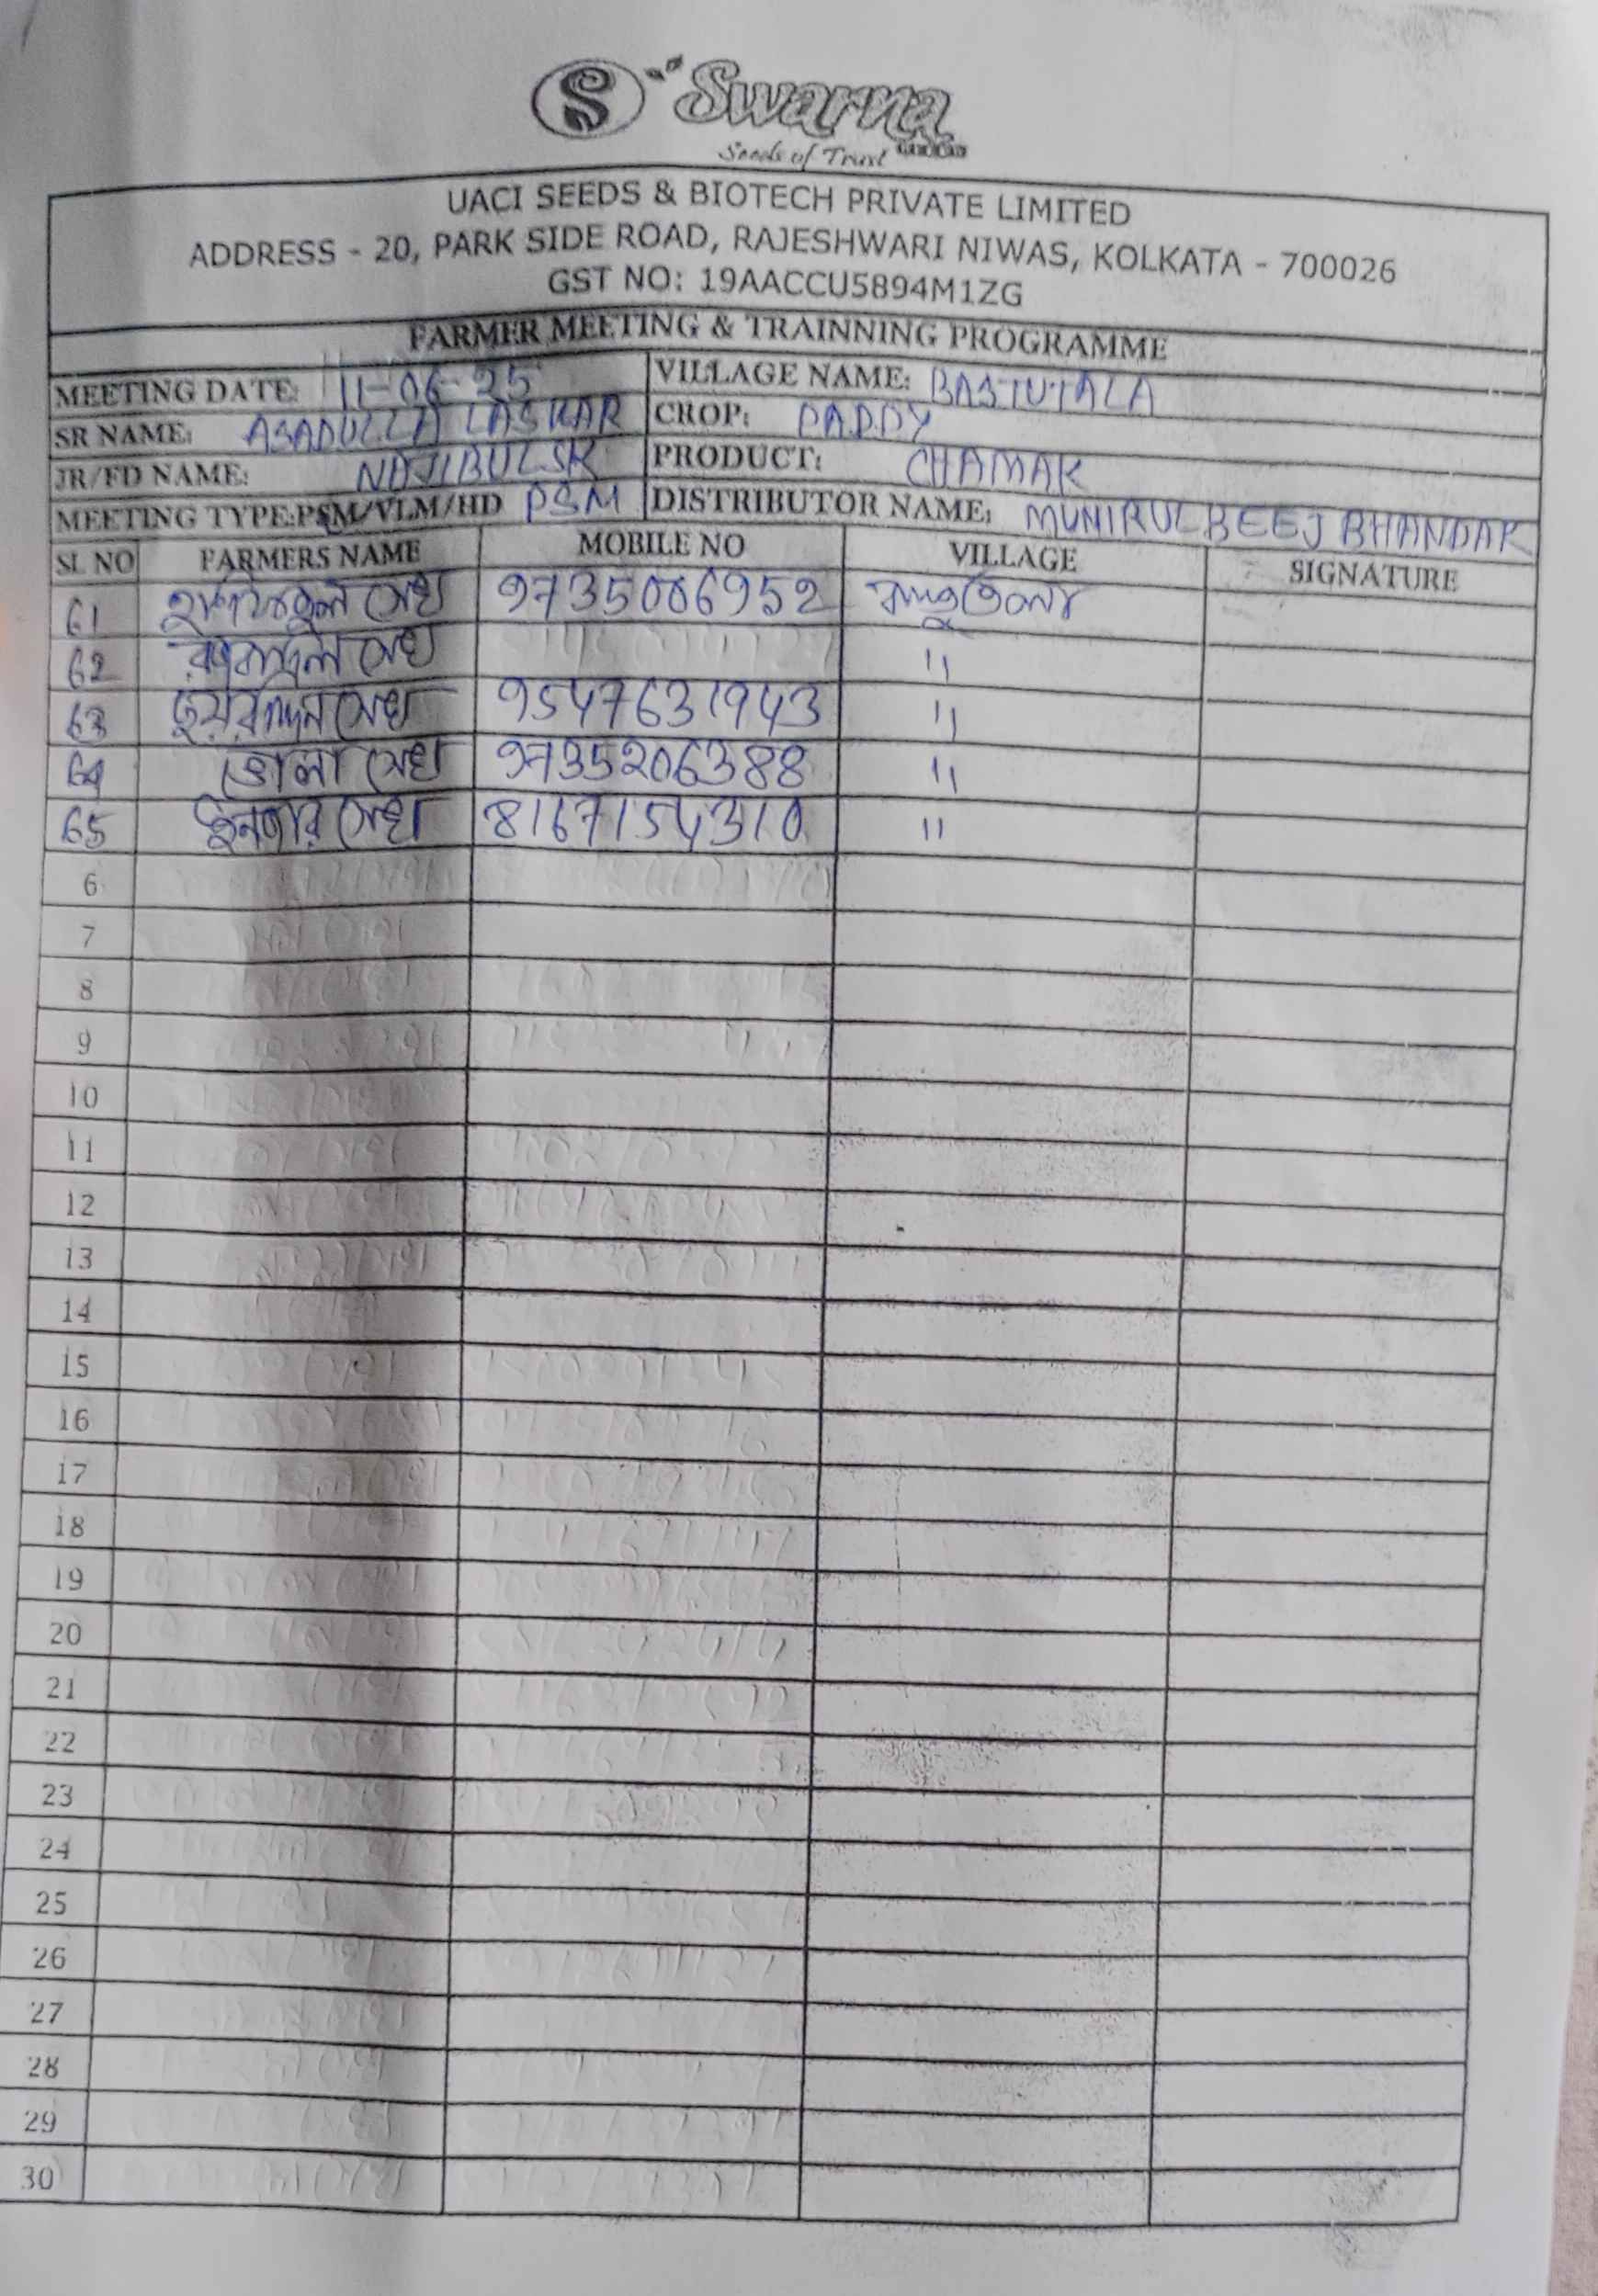 S Swarna
Seeds of Trust
UACI SEEDS & BIOTECH PRIVATE LIMITED
ADDRESS - 20, PARK SIDE ROAD, RAJESHWARI NIWAS, KOLKATA - 700026
GST NO: 19AACCU5894M1ZG
FARMER MEETING & TRAINNING PROGRAMME
MEETING DATE: 11-06-25 VILLAGE NAME: BASTUTALA
SR NAME: ASADULLA LASKAR CROP: PADDY
JR/FD NAME: NAJIBUL SK PRODUCT: CHAMAK
MEETING TYPE:PSM/VLM/HD PSM DISTRIBUTOR NAME: MUNIRUL BEEJ BHANDAR
SL NO FARMERS NAME MOBILE NO VILLAGE SIGNATURE
61 সেখ 9735006952 বাস্তুতলা
62 সেখ "
63 সেখ 9547631943 "
64 ভোলা সেখ 9735206388 "
65 ইনজার সেখ 8167154310 "
6
7
8
9
10
11
12
13
14
15
16
17
18
19
20
21
22
23
24
25
26
27
28
29
30